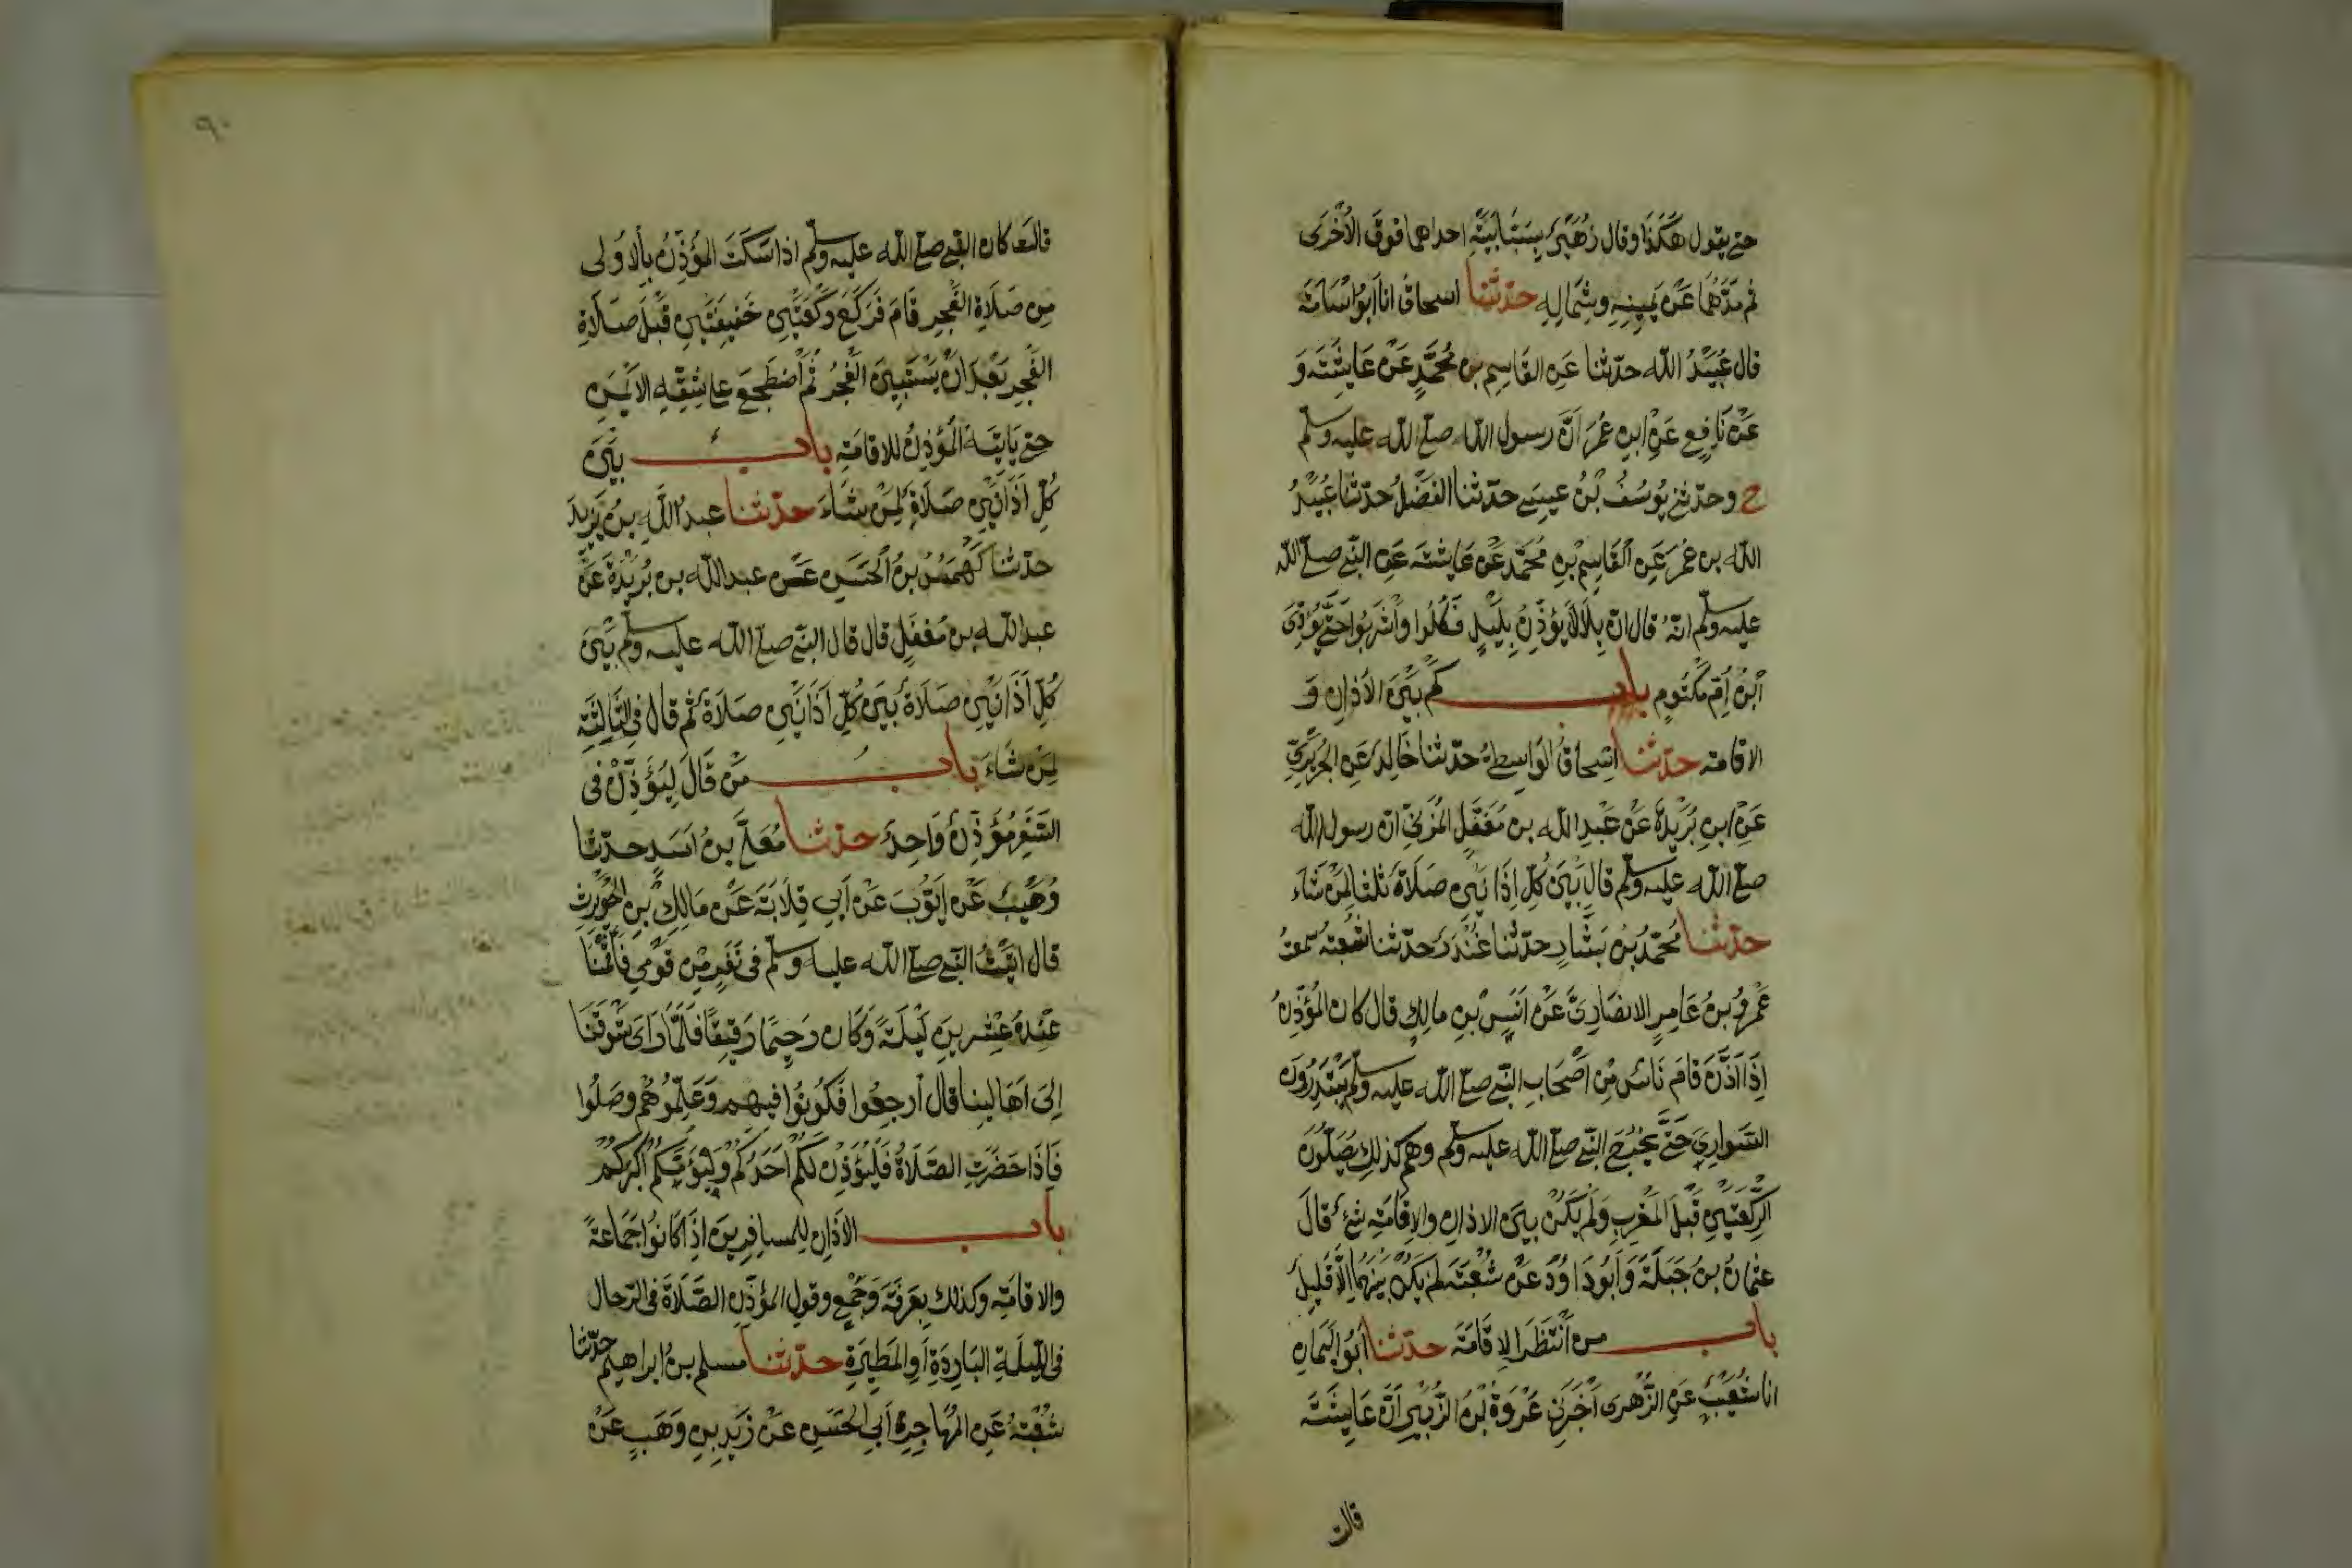 حتى يقول هكذا وقال زُهَيْرٌ بِسَبَّابَتَيْهِ احداهما فوق الأُخْرَى
ثم مدّهما عَنْ يَمِينِهِ وشِمَالِهِ حدّثنا اسحاق انا ابُو اُسَامَةَ
قال عُبَيْدُ الله حدّثنا عَنِ القَاسِمِ بن مُحَمَّدٍ عَنْ عَايِشَةَ وَ
عَنْ نَافِعٍ عَنِ ابنِ عُمَرَ اَنَّ رسول الله صلى الله عليه وسلم
ح وحدّثنى يُوسُفُ بْنُ عيسى حدّثنا الفَضْلُ حدّثنا عُبَيْدُ
الله بن عُمَرَ عَنِ القَاسِمِ بنِ مُحَمَّدٍ عَنْ عَايِشَةَ عَنِ النّبى صلى الله
عليه وسلم انّهُ قال انّ بِلَالًا يُؤذّنُ بِلَيْلٍ فَكُلُوا وَاشْرَبُوا حَتَّى يُؤَذِّنَ
ابْنُ اُمِّ مَكْتُومٍ باب كَمْ بَيْنَ الأذانِ وَ
الاقامة حدّثنا اسْحَاقُ الوَاسِطِىُّ حدّثنا خَالِدٌ عَنِ الجُرَيْرِيِّ
عَنْ ابنِ بُرَيْدَةَ عَنْ عَبْدِ الله بن مُغَفَّلٍ المُزَنِيِّ انّ رسول الله
صلى الله عليه وسلم قال بَيْنَ كُلِّ اذَانَيْنِ صَلَاةٌ ثلثا لِمَنْ شَاءَ
حدّثنا مُحَمَّدُ بنُ بَشَّارٍ حدّثنا غُنْدَرٌ حدّثنا شُعْبَةُ سمعتُ
عَمْرَو بنَ عَامِرٍ الانصَارِىَّ عَنْ اَنَسِ بنِ مالِكٍ قال كان المُؤَذِّنُ
إذَا أذَّنَ قَامَ نَاسٌ مِنْ أَصْحَابِ النّبى صلى الله عليه وسلم يَبْتَدِرُونَ
السّوارِيَ حَتَّى يَخْرُجَ النّبى صلى الله عليه وسلم وهم كذلك يُصَلّونَ
الرَّكْعَتَيْنِ قَبْلَ المَغْرِبِ وَلَمْ يَكُنْ بَيْنَ الاذانِ والإقَامَةِ شئٌ قالَ
عثمان بنُ جَبَلَةَ وَأبُو دَاوُدَ عَنْ شُعْبَةَ لم يكنْ بَيْنَهُمَا إلَّا قَلِيلٌ
باب من انْتَظَرَ الإقَامَةَ حدّثنا أبُو اليَمَانِ
انا شُعَيْبٌ عَنِ الزُّهْرى أخْبَرَنى عُرْوَةُ بْنُ الزُّبَيْرِ أنَّ عَايِشَةَ
قالت
٩٠
قالت كان النّبى صلى الله عليه وسلم اذا سَكَتَ المُؤَذِّنُ بالأولى
مِنْ صَلَاةِ الفَجْرِ قَامَ فَرَكَعَ رَكْعَتَيْنِ خَفِيفَتَيْنِ قَبْلَ صَلَاةِ
الفَجْرِ بَعْدَ أنْ يَسْتَبِينَ الْفَجْرُ ثُمَّ اضْطَجَعَ على شِقِّهِ الأيْمَنِ
حتى يَاتِيَهُ الْمُؤَذِنُ للاقامَةِ باب بَيْنَ
كُلِّ أذَانَيْنِ صَلَاةٌ لِمَنْ شَاءَ حدّثنا عبدُ اللَّه بنُ يَزِيدَ
حدّثنا كَهْمَسُ بنُ الْحَسَنِ عَنْ عبد الله بن بُرَيْدَةَ عَنْ
عبد الله بن مُغَفَّلٍ قال قال النّبى صلى الله عليه وسلم بَيْنَ
كُلِّ أذَانَيْنِ صَلَاةٌ بَيْنَ كُلِّ أذَانَيْنِ صَلَاةٌ ثُم قال فى الثَّالِثَةِ
لِمَنْ شَاءَ باب مَنْ قَالَ لِيُؤَذِّنْ فى
السّفَرِ مُؤَذِّنٌ وَاحِدٌ حدّثنا مُعَلَّى بنُ أسَدٍ حدّثنا
وُهَيْبٌ عَنْ أيُّوبَ عَنْ أبِي قِلَابَةَ عَنْ مَالِكِ بنِ الْحُوَيْرِثِ
قال اتَيْتُ النّبى صلى الله عليه وسلم فى نَفَرٍ مِنْ قَوْمِي فَأقَمْنَا
عِنْدَهُ عِشرِينَ لَيْلَةً وَكَان رَحِيمًا رَفِيقًا فَلَمَّا رَاى شَوْقَنَا
إلى أهَالِينا قَالَ ارجِعُوا فَكُونُوا فِيهِم وَعَلِّمُوهُمْ وصَلُّوا
فَإذَا حَضَرَتِ الصَّلَاةُ فَلْيُؤَذِّن لَكُمْ أحَدُكُمْ وَلْيَؤُمَّكُمْ أكْبَرُكُمْ
باب الاذَانِ لِلمسافِرِينَ إذَا كَانُوا جَمَاعَةً
والاقامَةِ وكذلك بِعَرَفَةَ وَجَمْعٍ وقول المؤذّن الصَّلَاةَ فى الرّحال
فى اللّيلَةِ البَارِدَةِ أوِ المَطِيرَةِ حدّثنا مسلم بنُ ابراهيم حدّثنا
شُعْبَةُ عَنِ المُهَاجِرِ أبِي الْحَسَنِ عَنْ زَيْدِ بنِ وَهَبٍ عَنْ